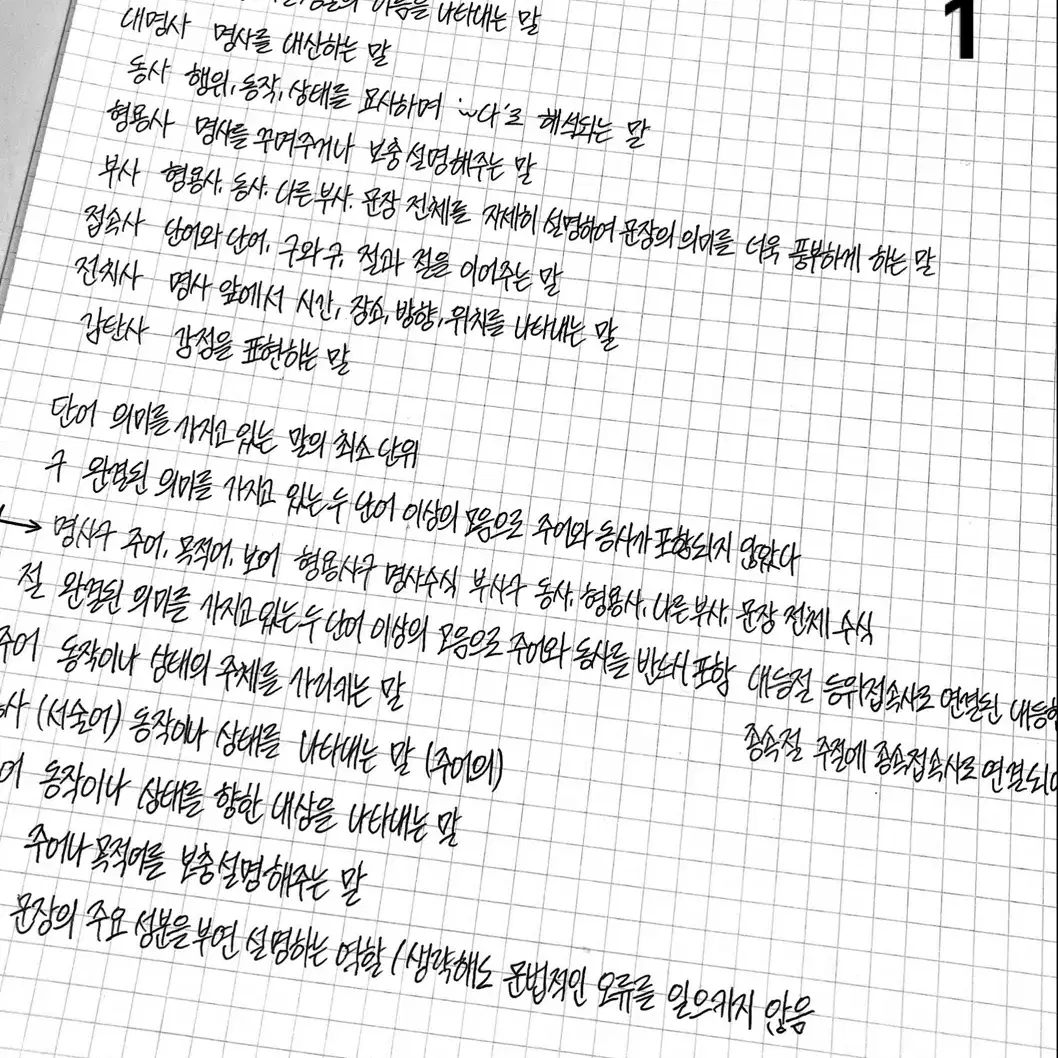 1
이름을 나타내는 말
대명사 명사를 대신하는 말
동사 행위, 동작, 상태를 묘사하며 '~다'로 해석되는 말
형용사 명사를 꾸며주거나 보충 설명해주는 말
부사 형용사, 동사, 다른 부사, 문장 전체를 자세히 설명하여 문장의 의미를 더욱 풍부하게 하는 말
접속사 단어와 단어, 구와 구, 절과 절을 이어주는 말
전치사 명사 앞에서 시간, 장소, 방향, 위치를 나타내는 말
감탄사 감정을 표현하는 말
단어 의미를 가지고 있는 말의 최소 단위
구 완결된 의미를 가지고 있는 두 단어 이상의 모음으로 주어와 동사가 포함되지 않았다
→ 명사구 주어, 목적어, 보어 형용사구 명사수식 부사구 동사, 형용사, 다른 부사, 문장 전체 수식
절 완결된 의미를 가지고 있는 두 단어 이상의 모음으로 주어와 동사를 반드시 포함 대등절 등위접속사로 연결된 대등한
종속절 주절에 종속접속사로 연결되어
주어 동작이나 상태의 주체를 가리키는 말
동사 (서술어) 동작이나 상태를 나타내는 말 (주어의)
어 동작이나 상태를 향한 대상을 나타내는 말
주어나 목적어를 보충 설명해주는 말
문장의 주요 성분을 부연 설명하는 역할 / 생략해도 문법적인 오류를 일으키지 않음